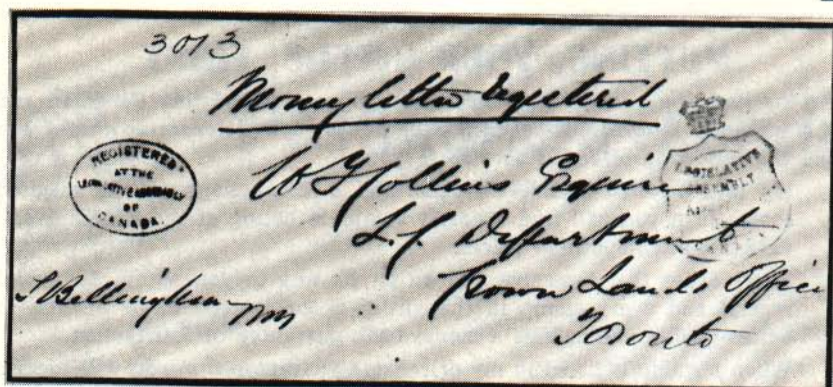 3013
Money letter Registered
REGISTERED
AT THE
LEGISLATIVE ASSEMBLY
OF
CANADA.
LEGISLATIVE
ASSEMBLY
Collins Esquire
Department
Crown Lands Office
Toronto
Bellingham